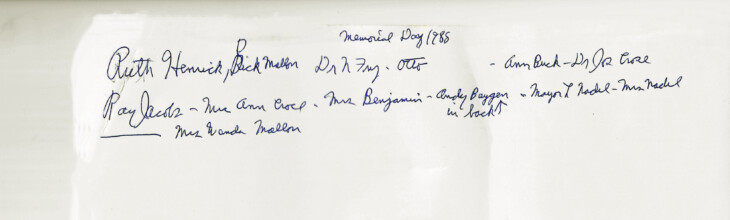 Memorial Day 1988
Ruth Henrick, Dick Mallon Dr N Fry - Otto - Ann Buck - Dr Joe Croce
Ray Jacobs - Mrs Ann Croce - Mrs Benjamin - Andy Baygen - Mayor L Nadel - Mrs Nadel
in back ↑
Mrs Wanda Mallon